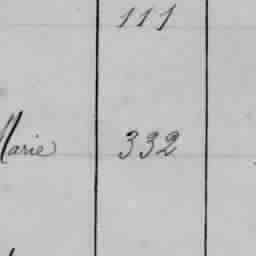 111
Marie 332